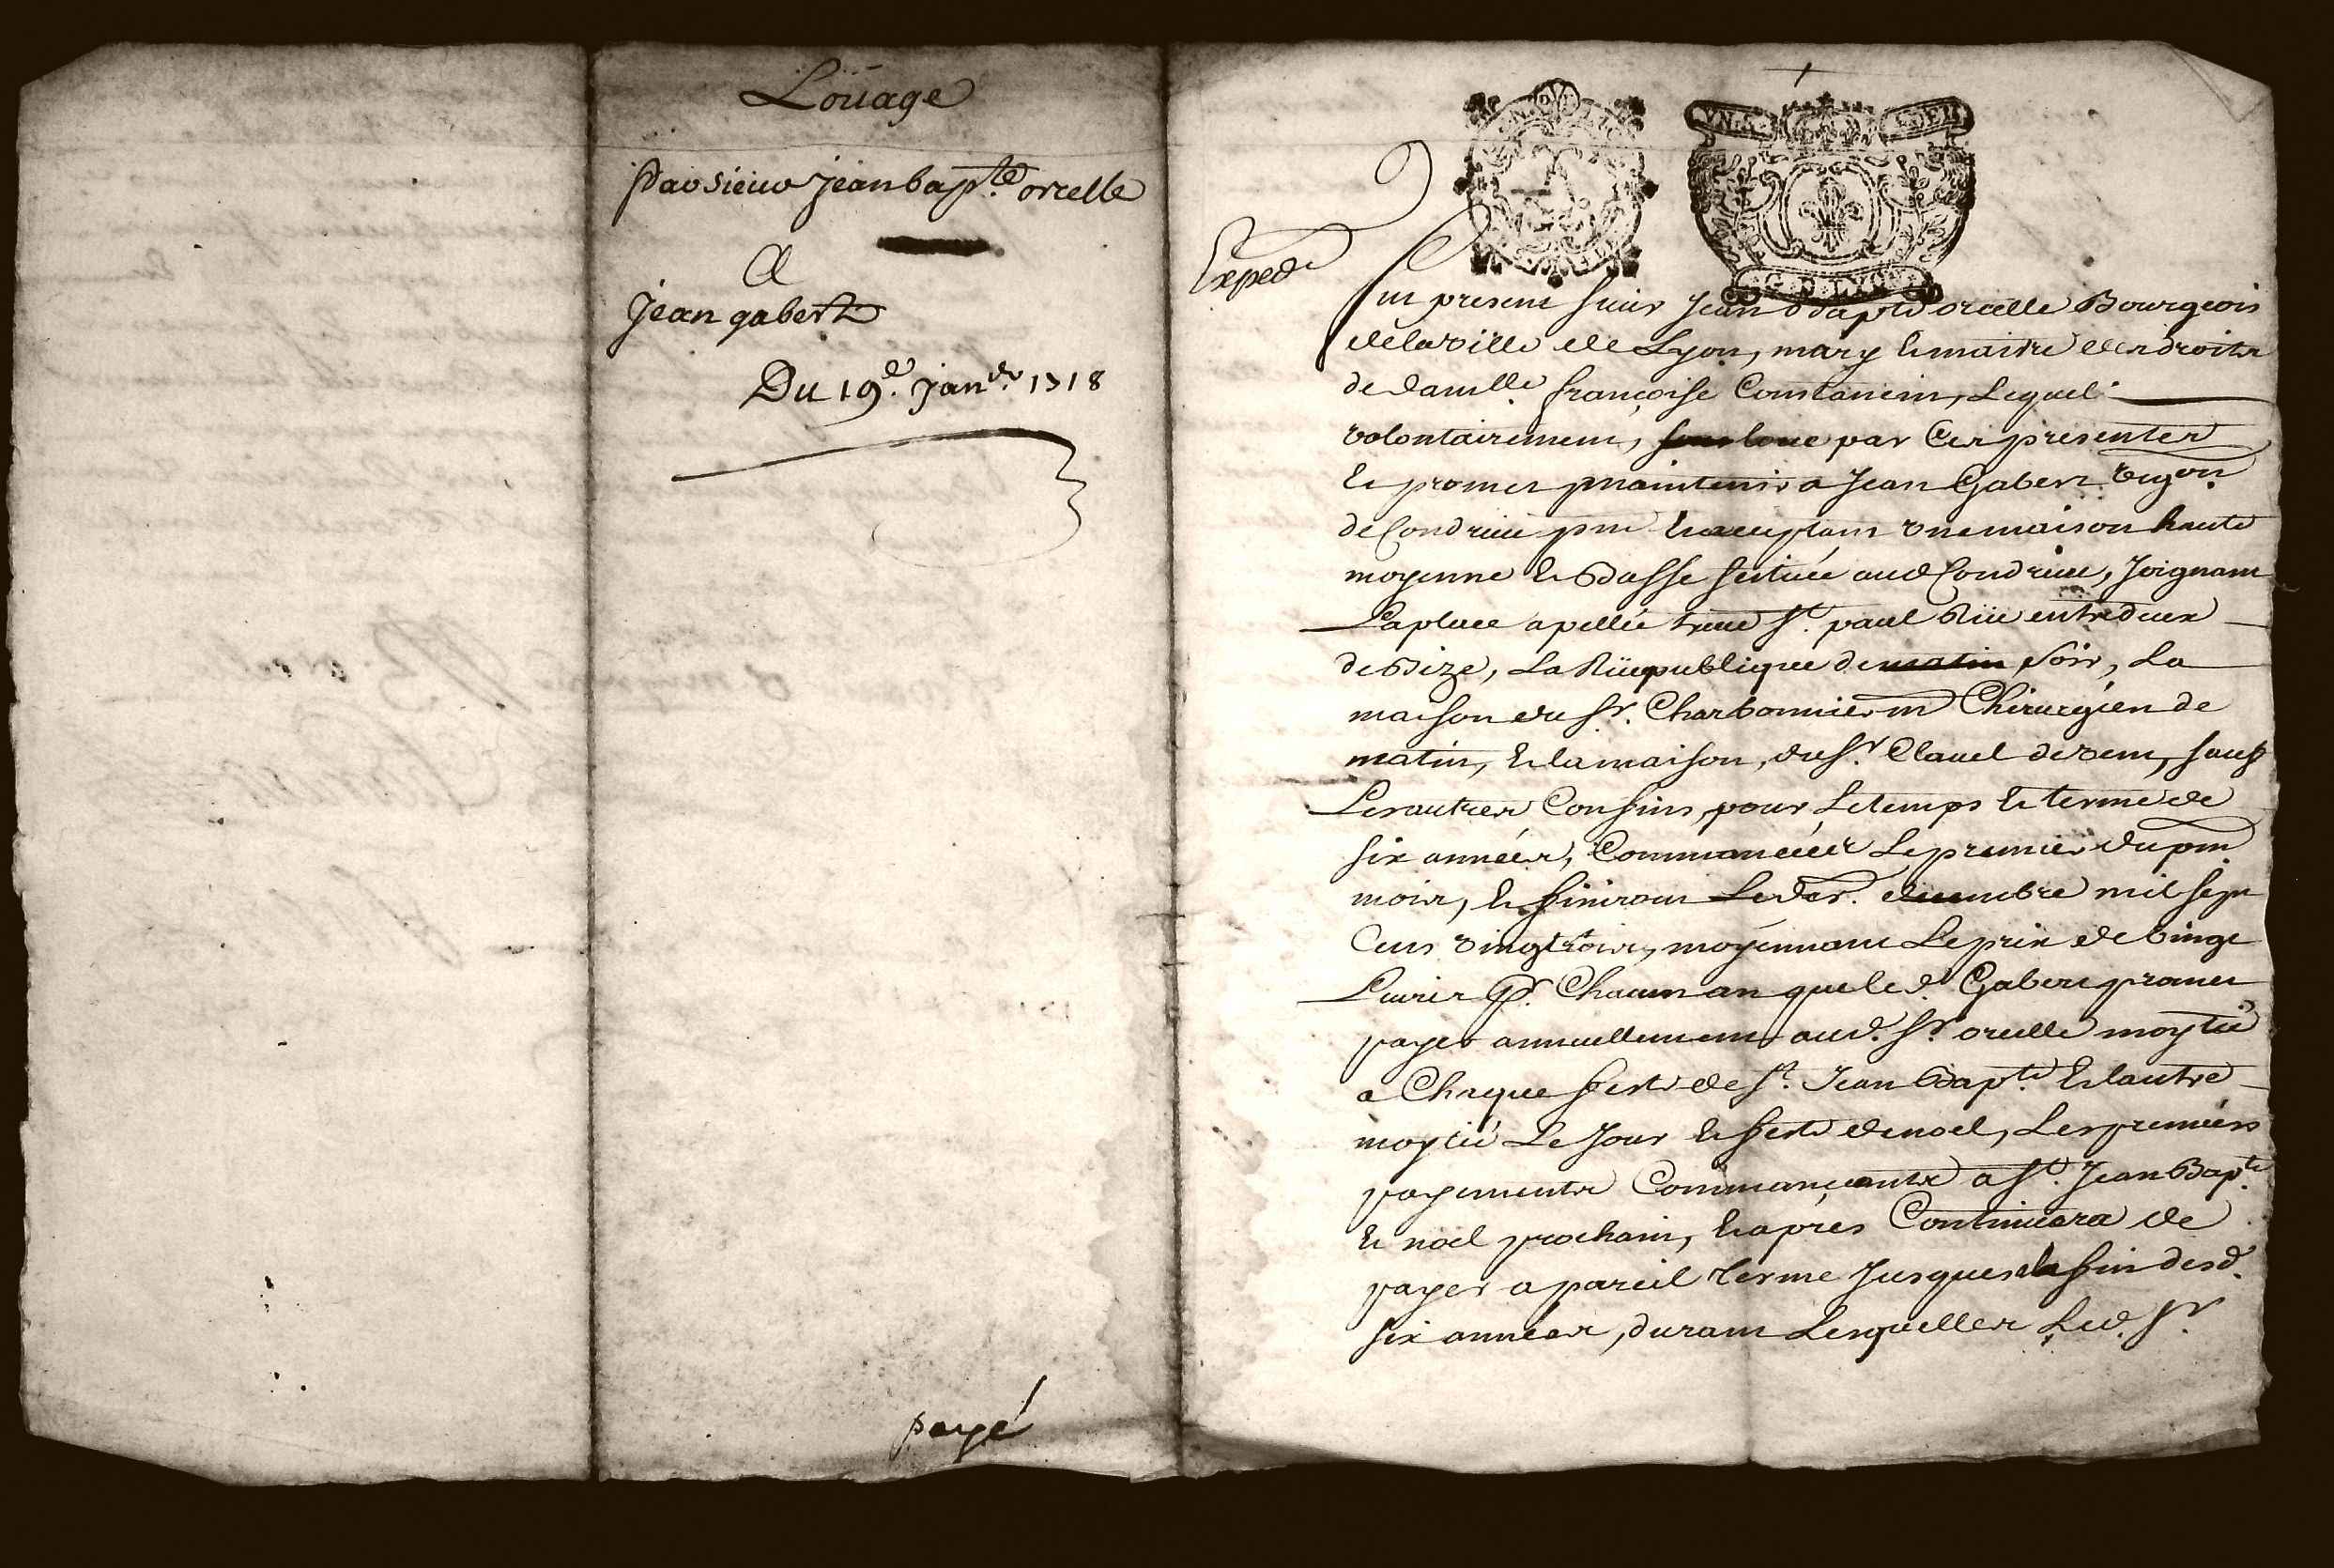 Loüage
Par sieur jean bapte. orcelle
A
jean gabert
Du 19e. janer. 1718
payé
Exped
Fut present sieur Jean Bapte orcelle Bourgeois
de la ville de Lyon, mary & maitre des droits
de damlle. françoise Constantin, Lequel
volontairement, par Ces presentes
& promet maintenir a Jean Gabert vigon.
de Condrieu pnt & acceptant une maison haute
moyenne & Basse scituée aud Condrieu, Joignant
La place apellée St. paul Rüe entredeux
de Bize, La Rüe publique de matin soir, La
maison du sr. Charbonnier m Chirurgien de
matin, & la maison, du sr. Clauel de vent, sauf
Les autres Confins, pour Le temps & terme de
six années, Commancées Le premier du pnt
mois, & finiront Le der. decembre mil sept
Cens vingt trois, moyennant Le prix de vingt
Liures pr. Chacun an que led. Gabert promet
payer annuellement aud. sr. orcelle moytié
a Chaque feste de st. Jean Bapte. & lautre
moytié Le Jour & feste de noel, Les premiers
payements Commançants a st. Jean Bapte.
& noel prochain, & après Continuera de
payer a pareil terme Jusques a la fin desd.
six années, durant Lesquelles Led. sr.